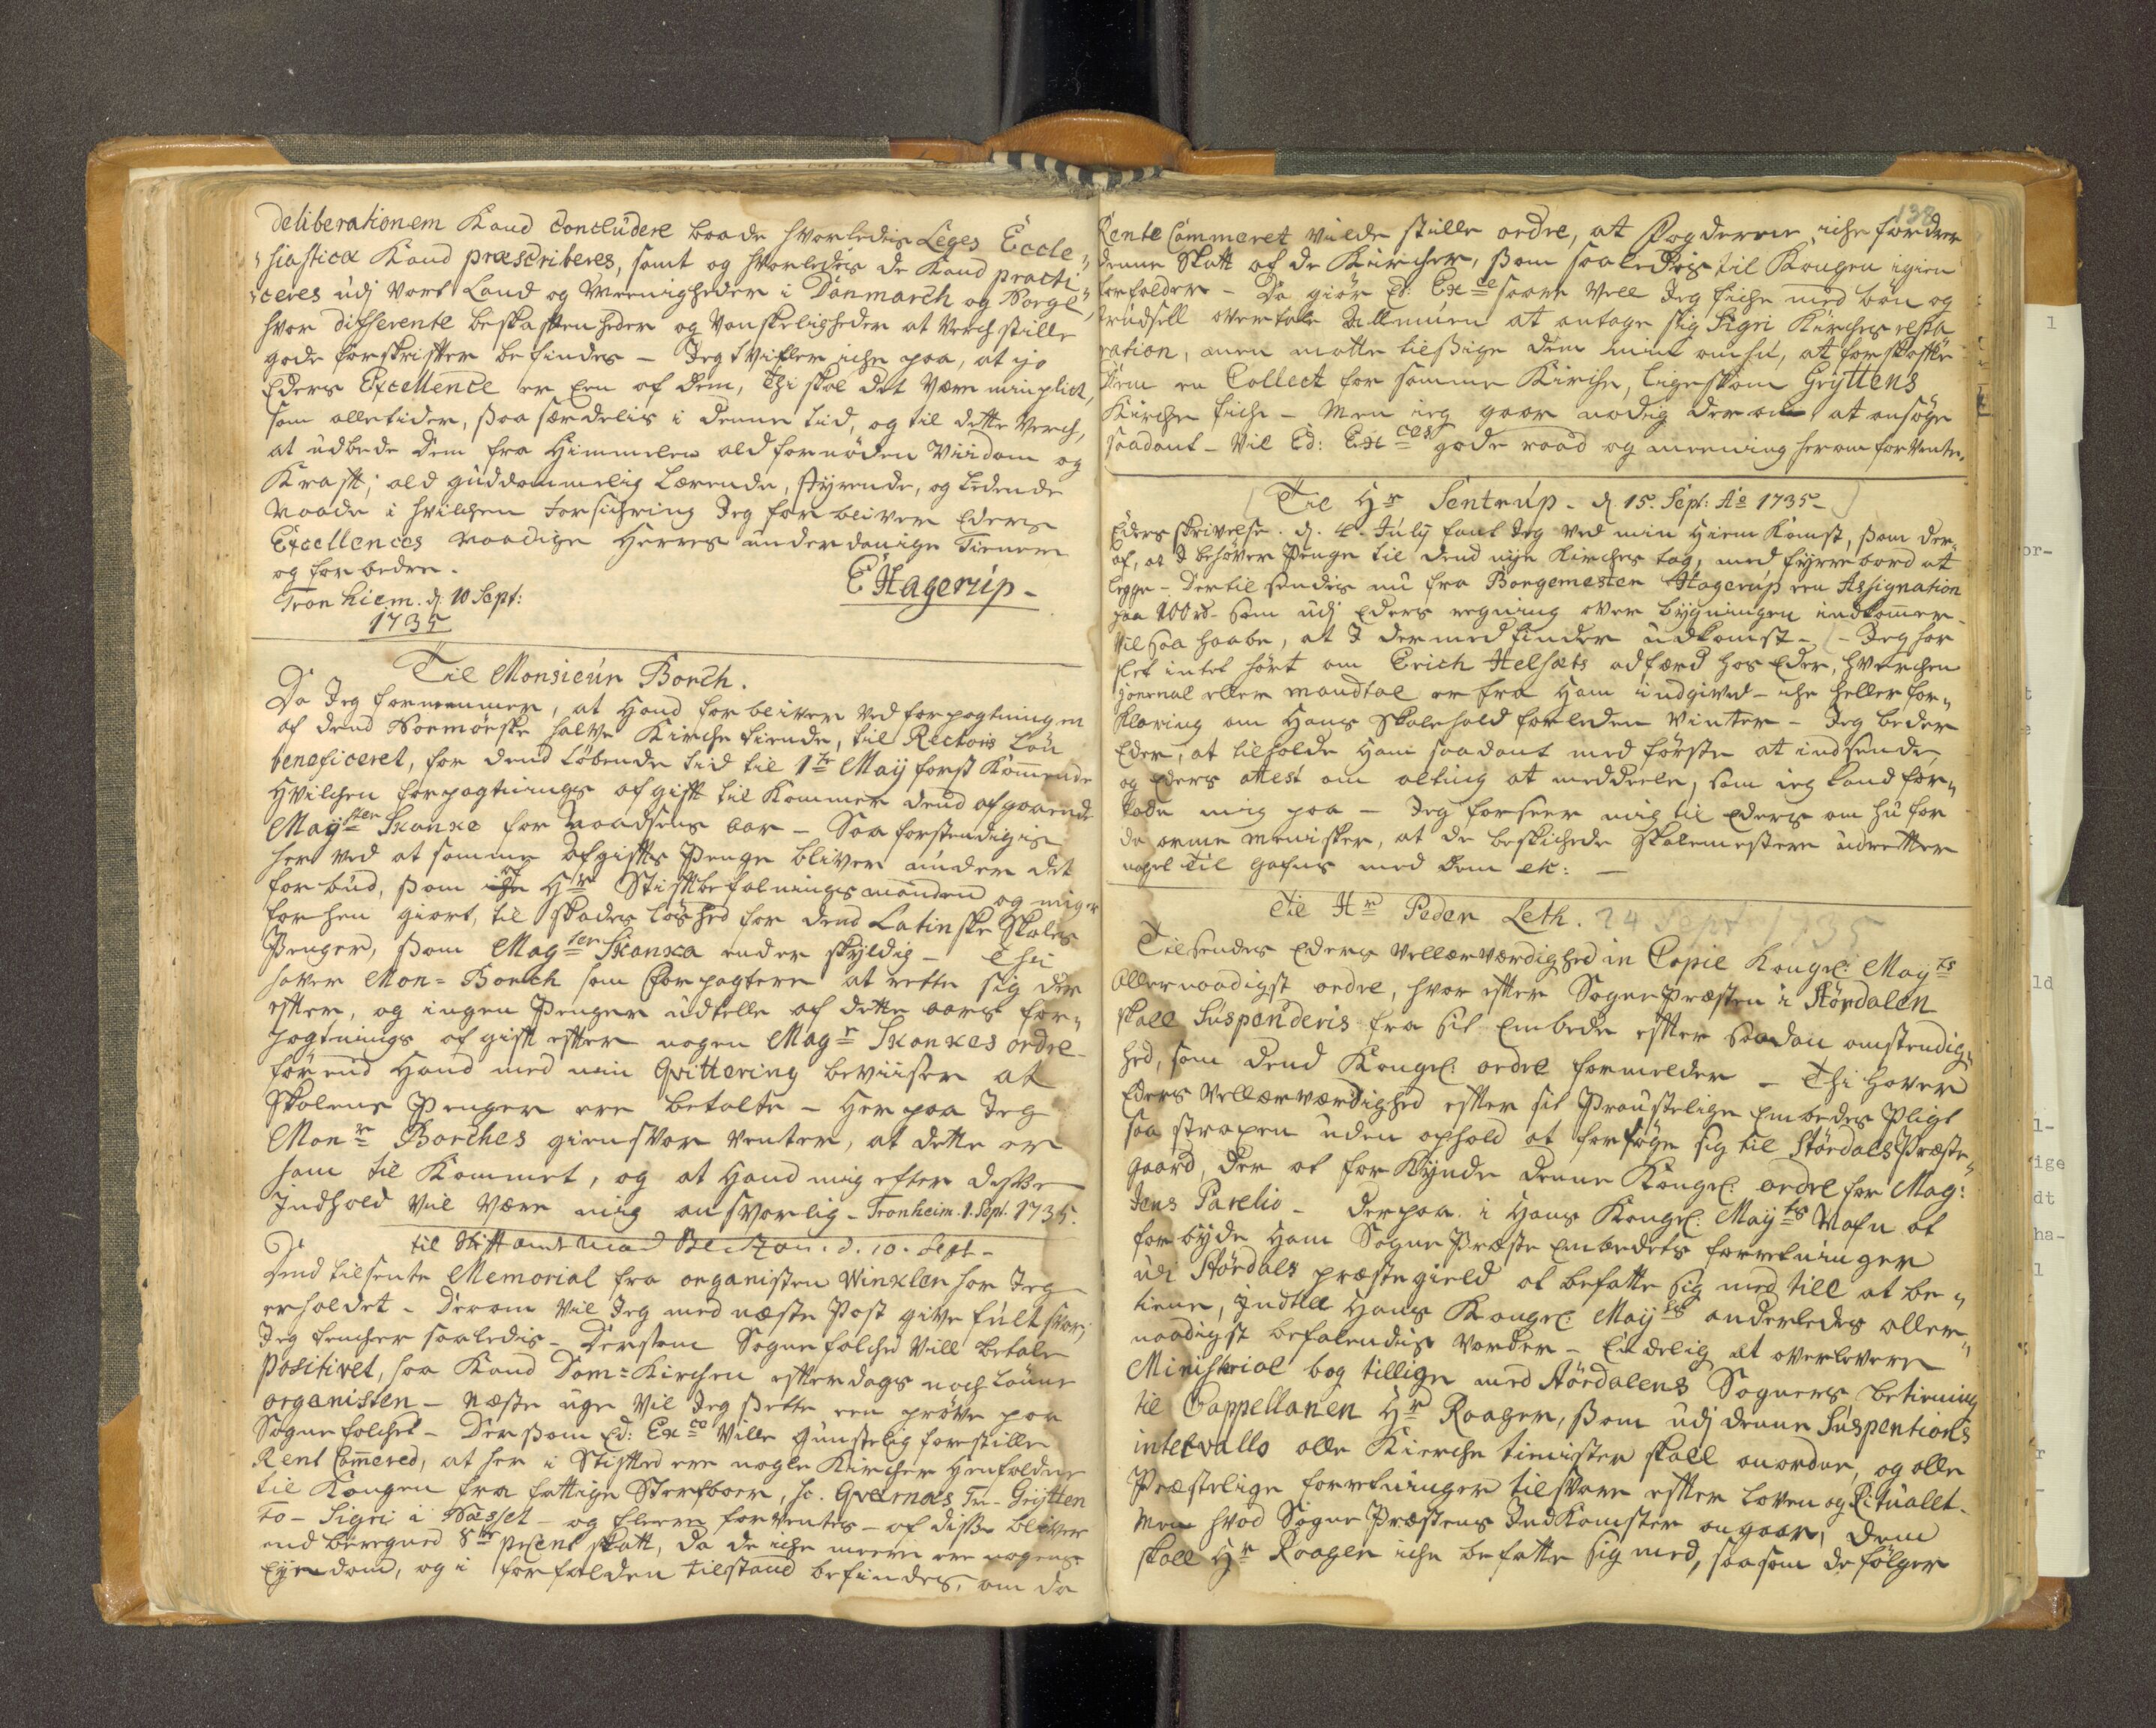 deliberationem Kand concludere baade hvorledis Leges Eccle„
„siasticæ Kand præscriberes, samt og hvorledis de Kand practi„
„ceres udj vort Land og Menigheder i Danmarch og Norge,
hvor differente beskaffenheder og Vanskeligheder at Verchstille
gode forskrifter befindes – Jeg tvifler iche paa, at jo
Eders Excellence er Een af dem, Thi skal det Være min plict,
som alletider, saa særdelis i denne tid, og til dette Verch,
at udbede dem fra Himmelen ald fornöden Viisdom og
Krafft; ald guddommelig Lærende, styrende, og Ledende
Naade i hvilchen forsichring Jeg forbliver Eders
Excellences naadige Herres underdanige Tienere
og forbeder.
E Hagerup –
Tronhiem. d. 10 Sept:
1735
Til Monsieur Borch.
Da Jeg fornemmer, at Hand forbliver ved forpagtningen
af dend Normörske halve Kirche tiende, til Rectoris Lön
beneficeret, for dend Löbende tid til 1te Maij först Kommende
Hvilchen forpagtnings afgifft til Kommer dend afgaaende
Magister Skanke for Naadsens aar – Saa forstendigis
her ved at samme Afgiffts Penge bliver under det
forbud, som Hr Stiftbefalningsmanden og mig er
forhen giort, til skadeslöshed for dend Latinske Skoles
Penger, som Magster Skanke ender skyldig – Thi
haver Mon= Borch som Forpagtere at rette sig der
effter, og ingen Penger udtelle af dette aars for„
pagtnings afgifft effter nogen Magr Skankes ordre
förend Hand med min Qvittering beviiser at
Skolens Penger ere betalte – Her paa Jeg
Monr Borches giensvar venter, at dette er
ham til Kommet, og at Hand mig efter disse
Indhold vil Være mig ansvarlig – Tronheim. 1. Sept. 1735.
til Stifftamtmand d. 10. Sept –
Dend tilsente Memorial fra organisten Winkler har Jeg
erholdet – Derom vil Jeg med næste Post give fult svar;
Jeg tencher saaledis – Dersom Sognefolchet vill betale
Positivet, saa Kand Dom=Kirchen effterdags noch Lönne
organisten – Næste uge vil Jeg sette een pröve paa
Sognefolchet – Dersom Ed: Exce ville gunstelig forestille
Rent Cammered, at her i Stifted ere nogle Kircher Henfaldne
til Kongen fra fattige Sterfboer, sc. Qvernæs, Tre – Grÿtten
To – Sigri i Næsset – og fleere forventes – af disse bliver
end beregned 8te pCent skatt, da de iche meere ere nogens
Eyendom, og i forfalden tilstand befindes, om da
138
Rente Cammeret vilde stille ordre, at Fogderne iche fordrer
denne Skatt af de Kircher, som saaledis til Kongen igien
forfalder – Da giör Ed: Exce saare vell Jeg fiche med bön og
trudsell overtale Allmuen at antage sig Sigri Kirches repa
ration, men matte tilsige dem min omhu, at forskaffe
dem en Collect for samme Kirche, ligesom Grÿttens
Kirche fiche – Men jeg gaar nödig der an at ansöge
saadant – vil Ed: Exces gode raad og meening herom forvente.
Til Hr Sentrup – d. 15. Sept: Ao 1735 –
Eders skrivelse. d. 4. Julÿ fant Jeg ved min Hiem Komst, som der„
af, at I behöver Penge til dend nye Kirches tag, med fyrre bord at
legge – Dertil sendis nu fra Borgemester Hagerup een Assignation
paa 100 rd – som udj Eders regning over bygningen indkommer –
vil saa haabe, at I dermed finder udkomst – – Jeg har
slet intet hört om Erich Helsets adfærd hos Eder, hverchen
jonrnal eller mandtal er fra Ham indgived – iche heller for„
klaring om Hans skolehold forleden Vinter – Jeg beder
Eder, at tilholde Ham saadant med förste at indsende,
og Eders attest om alting at meddeele, som jeg kand for„
lade mig paa – Jeg forseer mig til Eders omhu for
de arme Menisker, at de beskichede Skolemestere udretter
noget til gafns med dem etc: –
Til Hr Peder Leth. 24 Sept 1735
Tilsendes Eders Vellærværdighed in Copie Kongel: Mayts
allernaadigst ordre, hvor effter SognePræsten i Stördalen
skall Suspenderis fra sit Embede effter saadan omstendig„
hed, som dend Kongel: ordre formelder – Thi haver
Eders Vellærværdighed effter sit Proustelige Embedes Pligt
saa straxen uden ophold at forföge sig til StördalsPræste„
gaard, der at forKynde denne Kongel: ordre for Mag:
Jens Parelio – derpaa i Hans Kongel: Mayts Nafn at
forbyde Ham SognePræste Embedets forretninger
udi Stördals præstegield at befatte sig med till at be„
tiene, Indtill Hans Kongel: Mayts anderledes aller„
naadigst befalendis vorder – Endelig at overlevere
Ministerial bog tillige med Stördalens Sogners betiening
til Cappellanen Hr Raager, som udj denne Suspentions
intervallo alle Kirche tienister skall anordne, og alle
Præstelige forretninger tilsvare effter Loven og Rituallet.
Men hvad SognePræstens IndKomster angaar, dem
skall Hr Raager iche befatte sig med, saasom de fölger